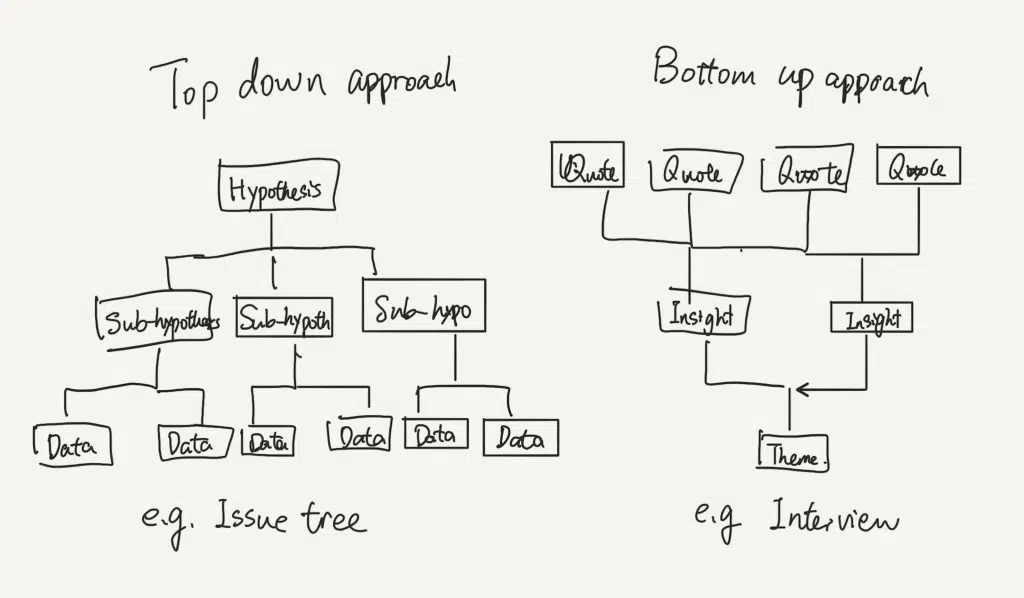 Top down approach
Hypothesis
Sub-hypothesis
Sub-hypoth
Sub-hypo
Data
Data
Data
Data
Data
Data
e.g. Issue tree
Bottom up appoach
Quote
Quote
Quote
Quote
Insight
Insight
Theme.
e.g Interview